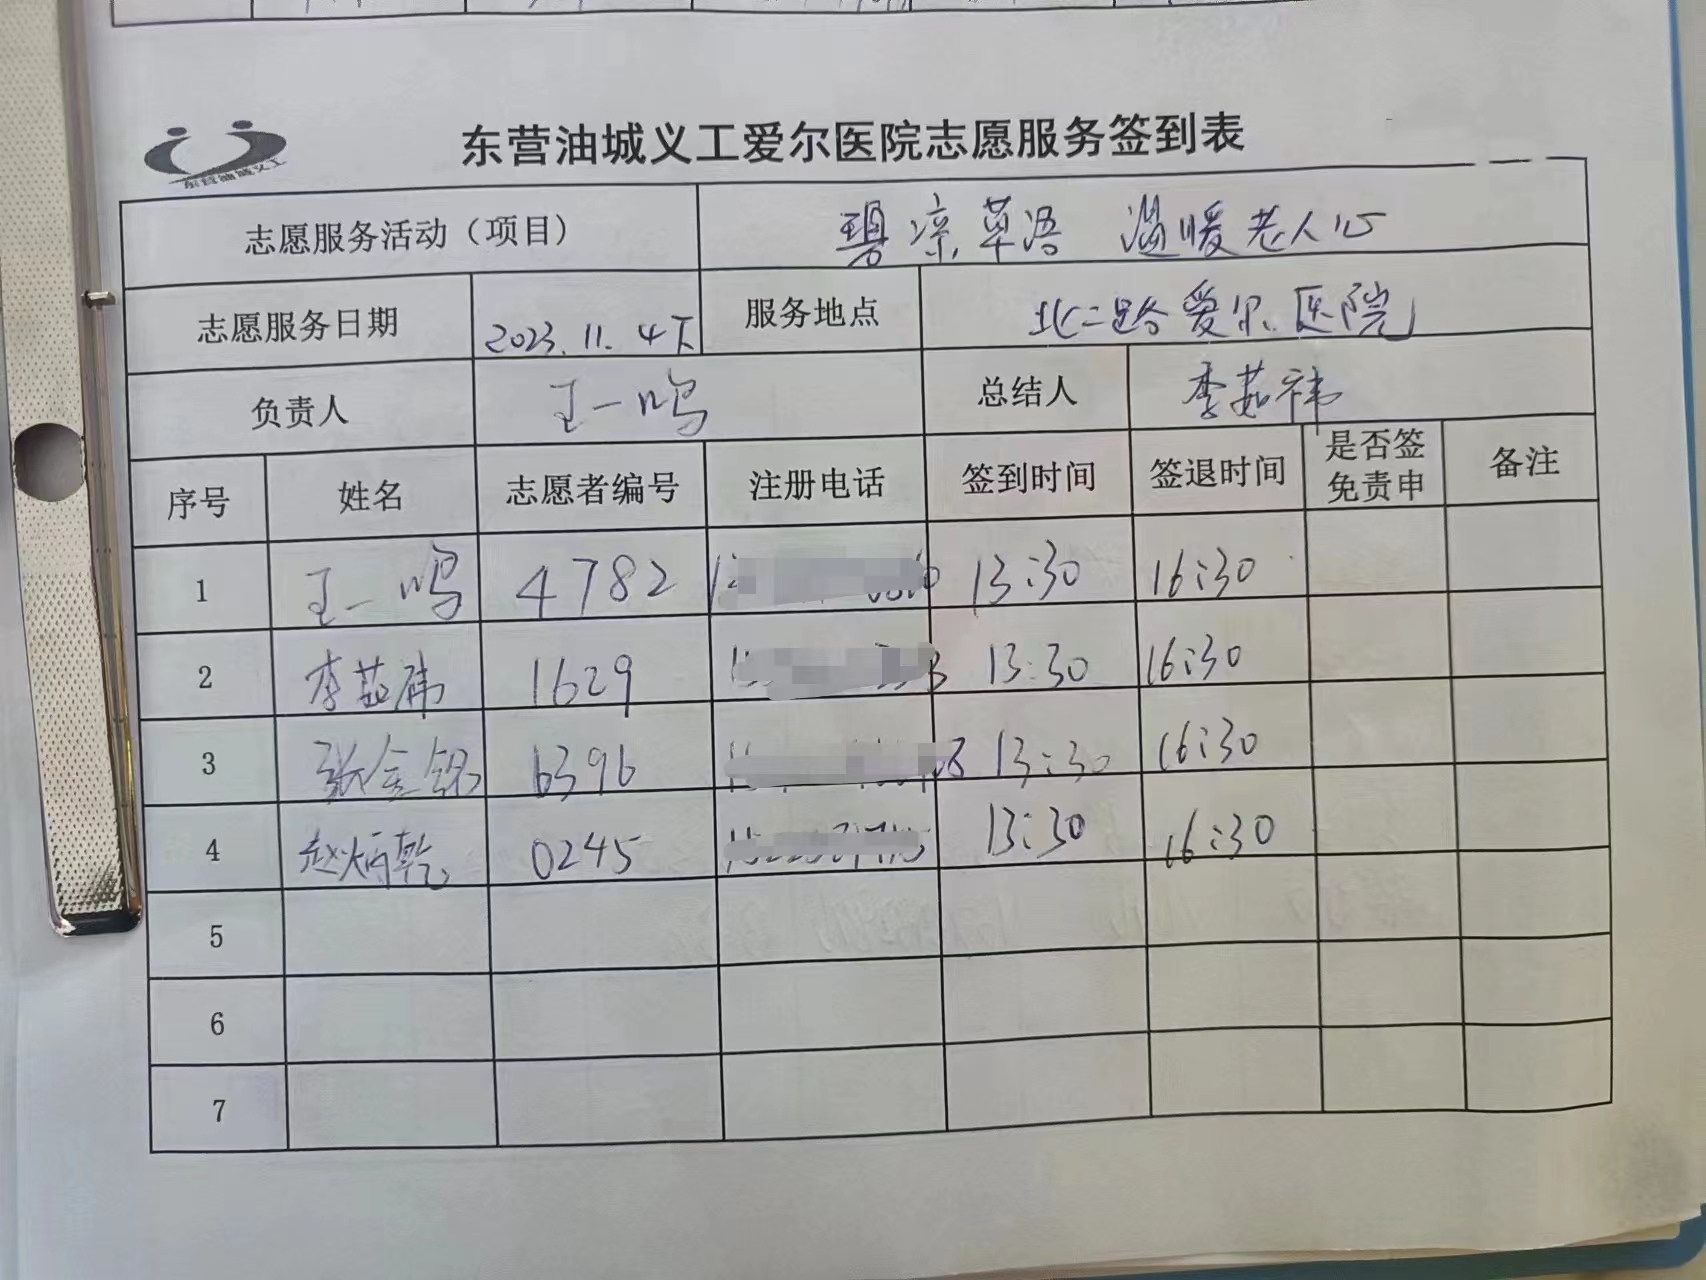 东营油城义工
东营油城义工爱尔医院志愿服务签到表
志愿服务活动（项目） 碧凉草语 温暖老人心
志愿服务日期 2023.11.4下 服务地点 北二路爱尔医院
负责人 王一鸣 总结人 李茹祎
序号 姓名 志愿者编号 注册电话 签到时间 签退时间 是否签免责申 备注
1 王一鸣 4782 13:30 16:30
2 李 1629 13:30 16:30
3 张金铭 6396 13:30 16:30
4 赵炳乾 0245 13:30 16:30
5
6
7